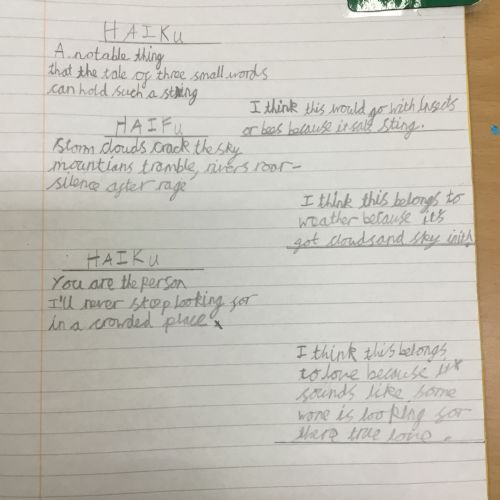 HAIKU
A notable thing
that the tale of three small words
can hold such a sting
I think this would go with Insects
or bees because it says Sting.
HAIFU
Storm clouds crack the sky
mountians tramble, rivers roar-
silence after rage
I think this belongs to
weather because it's
got clouds and sky in it
HAIKU
You are the person
I'll never stop looking for
in a crowded place.
I think this belongs
to love because it
sounds like some
wone is looking for
there true love.